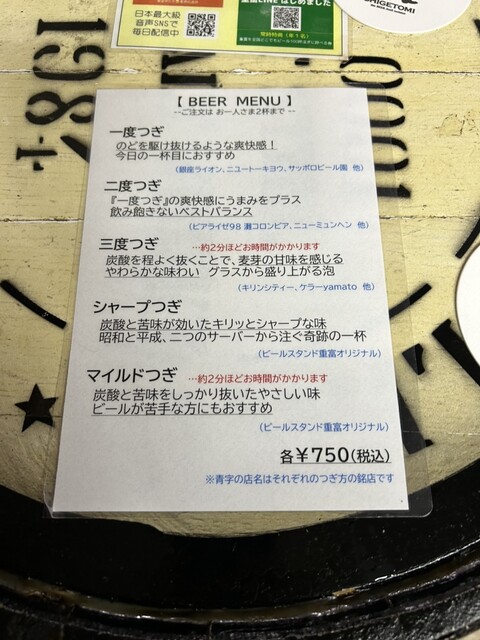 日本最大級
音声SNSで
毎日配信中
重富LINEはじめました
SHIGETOMI
【 BEER MENU 】
--ご注文は お一人さま2杯まで --
一度つぎ
のどを駆け抜けるような爽快感！
今日の一杯目におすすめ
（銀座ライオン、ニュートーキヨウ、サッポロビール園 他）
二度つぎ
『一度つぎ』の爽快感にうまみをプラス
飲み飽きないベストバランス
（ビアライゼ98 灘コロンビア、ニューミュンヘン 他）
三度つぎ …約2分ほどお時間がかかります
炭酸を程よく抜くことで、麦芽の甘味を感じる
やわらかな味わい グラスから盛り上がる泡
（キリンシティー、ケラーyamato 他）
シャープつぎ
炭酸と苦味が効いたキリッとシャープな味
昭和と平成、二つのサーバーから注ぐ奇跡の一杯
（ビールスタンド重富オリジナル）
マイルドつぎ …約2分ほどお時間がかかります
炭酸と苦味をしっかり抜いたやさしい味
ビールが苦手な方にもおすすめ
（ビールスタンド重富オリジナル）
各￥750(税込)
※青字の店名はそれぞれのつぎ方の銘店です